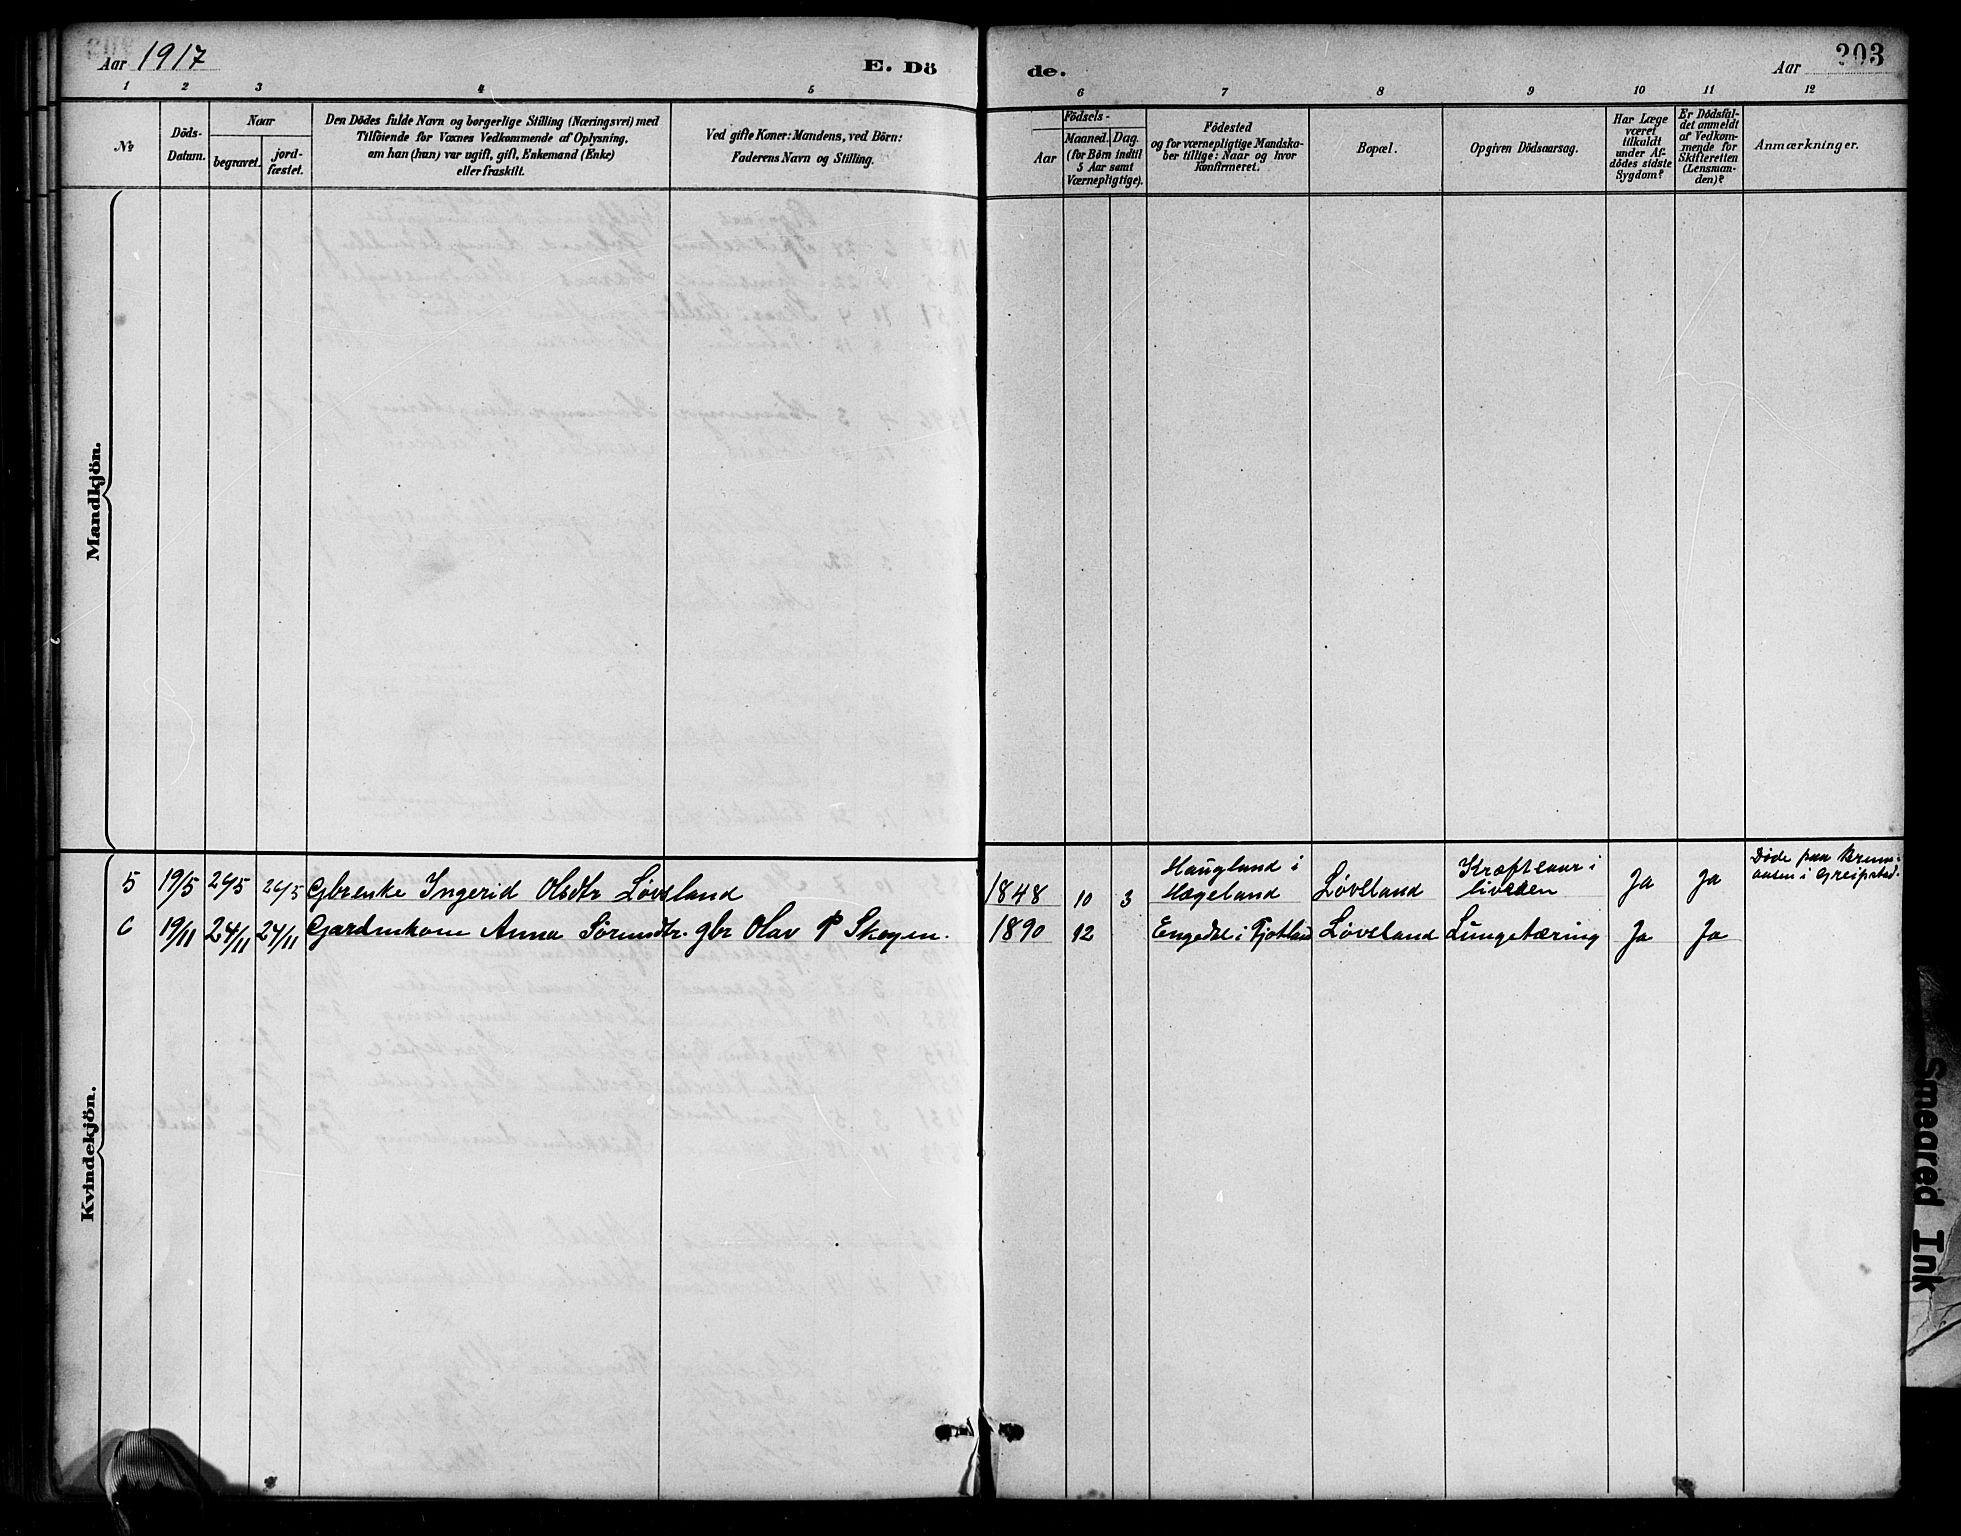 Aar 1917
E. Dö
de.
Aar
203
1 2 3 4 5 6 7 8 9 10 11 12
№
Döds-
Datum.
Naar
begravet.
jord-
fæstet.
Den Dödes fulde Navn og borgerlige Stilling (Næringsvei) med
Tilföiende for Voxnes Vedkommende af Oplysning,
om han (hun) var ugift, gift, Enkemand (Enke)
eller fraskilt.
Ved gifte Koner: Mandens, ved Börn:
Faderens Navn og Stilling.
Födsels-
Aar
Maaned.
Dag.
(for Börn indtil
5 Aar samt
Værnepligtige).
Födested
og for værnepligtige Mandska-
ber tillige: Naar og hvor
Konfirmeret.
Bopæl.
Opgiven Dödsaarsag.
Har Læge
været
tilkaldt
under Af-
dödes sidste
Sygdom?
Er Dödsfal-
det anmeldt
af Vedkom-
mende for
Skifteretten
(Lensman-
den)?
Anmærkninger.
Mandkjön.
Kvindekjön.
5 19/5 24/5 24/5 Gbrenke Ingerid Olsdtr Løvsland 1848 10 3 Haugland i
Hægeland Løvsland Kræftsaar i
livsden Ja Ja Døde paa Brunn-
aasen i Greipstad.
6 19/11 24/11 24/11 Gardmkone Anna Sörensdtr. gbr Olav P Skogen. 1890 12 Engedal i Fjotland Løvsland Lungetæring Ja Ja
Smeared Ink